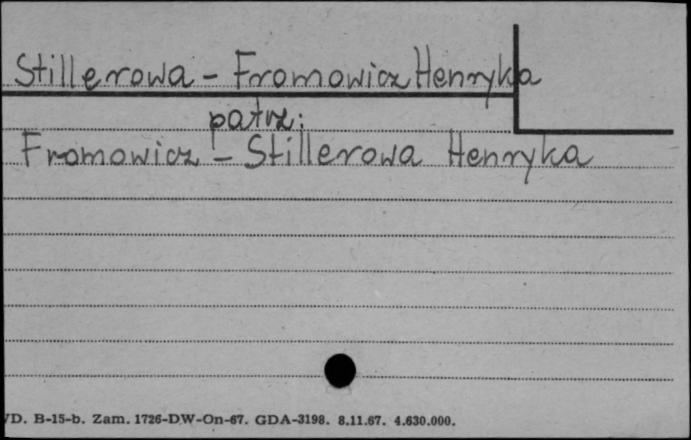 Stillerowa - Fromowicz Henryka
patrz:
Fromowicz - Stillerowa Henryka
D. B-15-b. Zam. 1726-DW-On-67. GDA-3198. 8.11.67. 4.630.000.